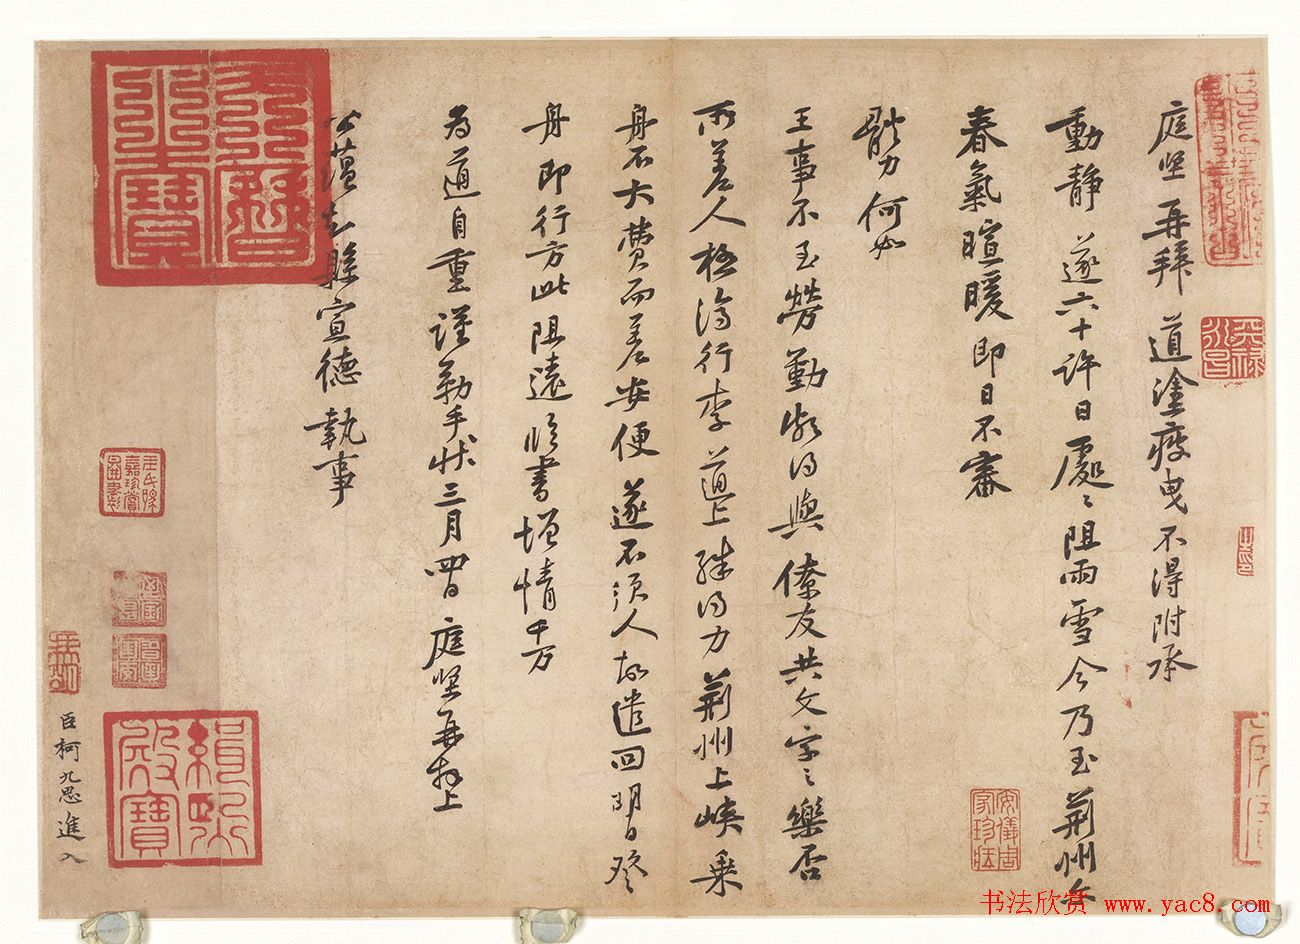 庭坚再拜道塗疲曳不得附承
動静遂六十許日處〻阻雨雪今乃至荆州
春氣暄暖即日不審
體力何如
王事不至勞勤頗得與僚友共文字之樂否
所差人極濟行李道上殊得力荆州上峽乘
舟不大費而差安便遂不須人故遣回明日發
舟即行方此阻遠臨書增情千万
為道自重謹勒手狀三月四日庭堅再拜上
公蘊知縣宣德執事
臣柯九思進入
天曆之寶
緝熙殿寶
安儀周家珍藏
書法欣赏 www.yac8.com